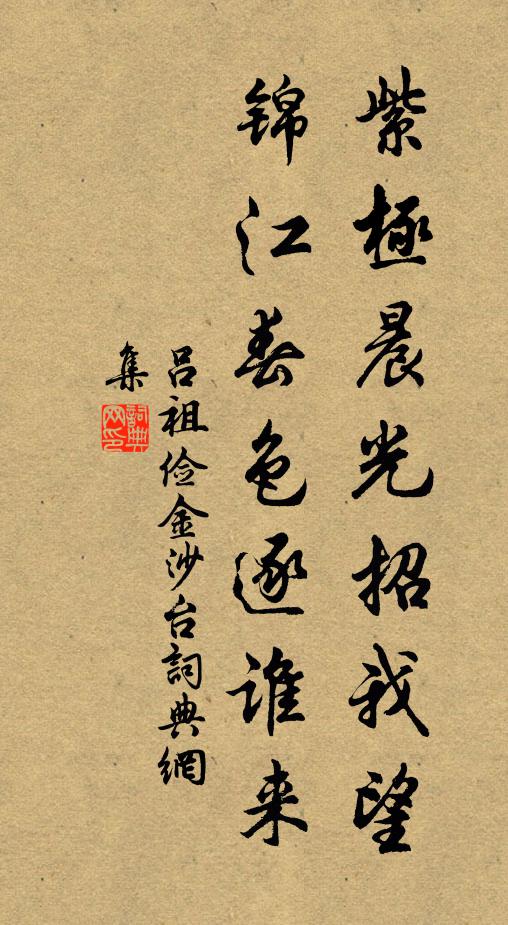 紫極晨光招我望
锦江春色逐谁来
吕祖俭金沙台詞典網
集
詞典网印